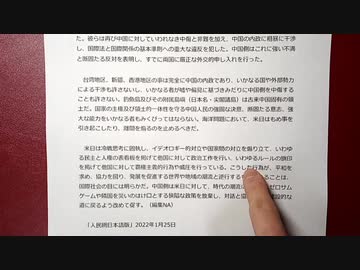 た。彼らは再び中国に対していわれなき中傷と非難を加え、中国の内政に粗暴に干渉
し、国際法と国際関係の基本準則への重大な違反を犯した。中国側はこれに強い不満
と断固たる反対を表明し、すでに両国に厳正な外交的申し入れを行った。
台湾地区、新疆、香港地区の事は完全に中国の内政であり、いかなる国や外部勢力
による干渉も許さないし、いかなる者が嘘や偏見に基づきみだりに中国側を中傷する
ことも許さない。釣魚島及びその附属島嶼（日本名・尖閣諸島）は古来中国固有の領
土だ。国家の主権及び領土的一体性を守る中国人民の強固な決意、断固たる意志、強
大な能力をいかなる者もみくびってはならない。海洋問題において、米日はもめ事を
引き起こしたり、挑発を煽るのを止めるべきだ。
米日は冷戦思考に固執し、イデオロギー的対立や国家間の対立を煽り立て、いわゆ
る民主と人権の表看板を掲げて他国に対して政治工作を行い、いわゆるルールの旗印
を掲げて他国に対して覇権主義的行為や威圧を行っている。こうした行為が、平和を
求め、協力を図り、発展を促進する世界や地域の潮流と逆行する
ことは、
国際社会の目には明らかだ。中国側は米日に対して、時代の潮流
ゼロサム
ゲームや隣国を災いのはけ口とする狭隘な政策を放棄し、対話と協
な道に戻るよう改めて促す。（編集NA）
「人民網日本語版」2022年1月25日